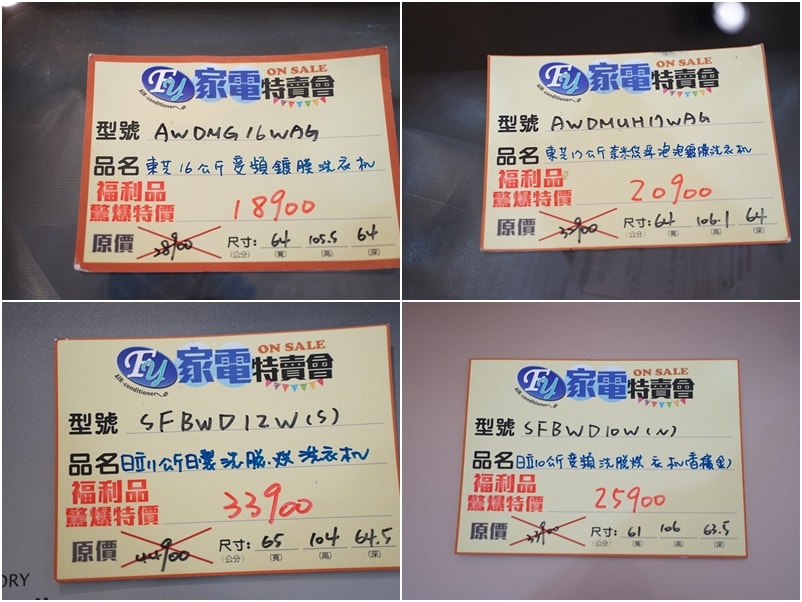 Fy 家電特賣會 ON SALE
AIR-conditioner
型號 AWDMG16WAG
品名 東芝16公斤變頻鍍膜洗衣机
福利品
驚爆特價 18900
原價 28900 尺寸: 64 105.5 64
(公分) (寬) (高) (深)
Fy 家電特賣會 ON SALE
AIR-conditioner
型號 AWDMUH17WAG
品名 東芝17公斤奈米悠浮泡泡鍍膜洗衣机
福利品
驚爆特價 20900
原價 尺寸: 64 106.1 64
(公分) (寬) (高) (深)
Fy 家電特賣會 ON SALE
AIR-conditioner
型號 SFBWD12W(S)
品名 日立11公斤日製洗脫.烘洗衣机
福利品
驚爆特價 33900
原價 44900 尺寸: 65 104 64.5
(公分) (寬) (高) (深)
ORY
Fy 家電特賣會 ON SALE
AIR-conditioner
型號 SFBWD10W(N)
品名 日立10公斤變頻洗脫烘衣机(香檳金)
福利品
驚爆特價 25900
原價 33900 尺寸: 61 106 63.5
(公分) (寬) (高) (深)